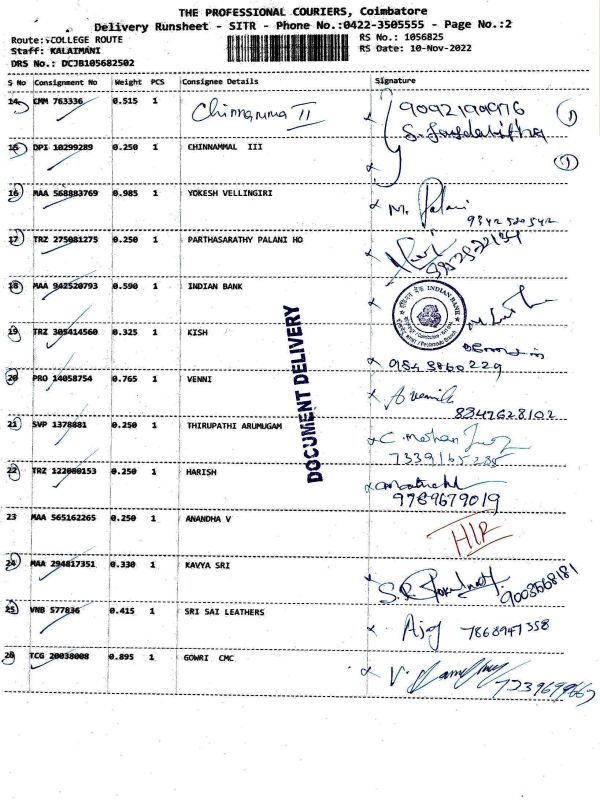 THE PROFESSIONAL COURIERS, Coimbatore
Delivery Runsheet - SITR - Phone No.:0422-3505555 - Page No.:2
Route: COLLEGE ROUTE RS No.: 1056825
Staff: KALAIMANI RS Date: 10-Nov-2022
DRS No.: DCJB105682502
S No Consignment No Weight PCS Consignee Details Signature
14 CMM 763336 0.515 1 Chinnamma II
15 DPI 10299289 0.250 1 CHINNAMMAL III
16 MAA 568883769 0.985 1 YOKESH VELLINGIRI M. Palani
9342520342
17 TRZ 275081275 0.250 1 PARTHASARATHY PALANI HO
18 MAA 942520793 0.590 1 INDIAN BANK
INDIAN BANK
19 TRZ 305414560 0.325 1 KISH
20 PRO 14058754 0.765 1 VENNI
8347628102
21 SVP 1378881 0.250 1 THIRUPATHI ARUMUGAM C. Mohan
7339165285
22 TRZ 122080153 0.250 1 HARISH
9789679019
DOCUMENT DELIVERY
23 MAA 565162265 0.250 1 ANANDHA V
24 MAA 294817351 0.330 1 KAVYA SRI 9003568181
25 VNB 577836 0.415 1 SRI SAI LEATHERS Ajay 7868947358
26 TCG 20038008 0.895 1 GOWRI CMC